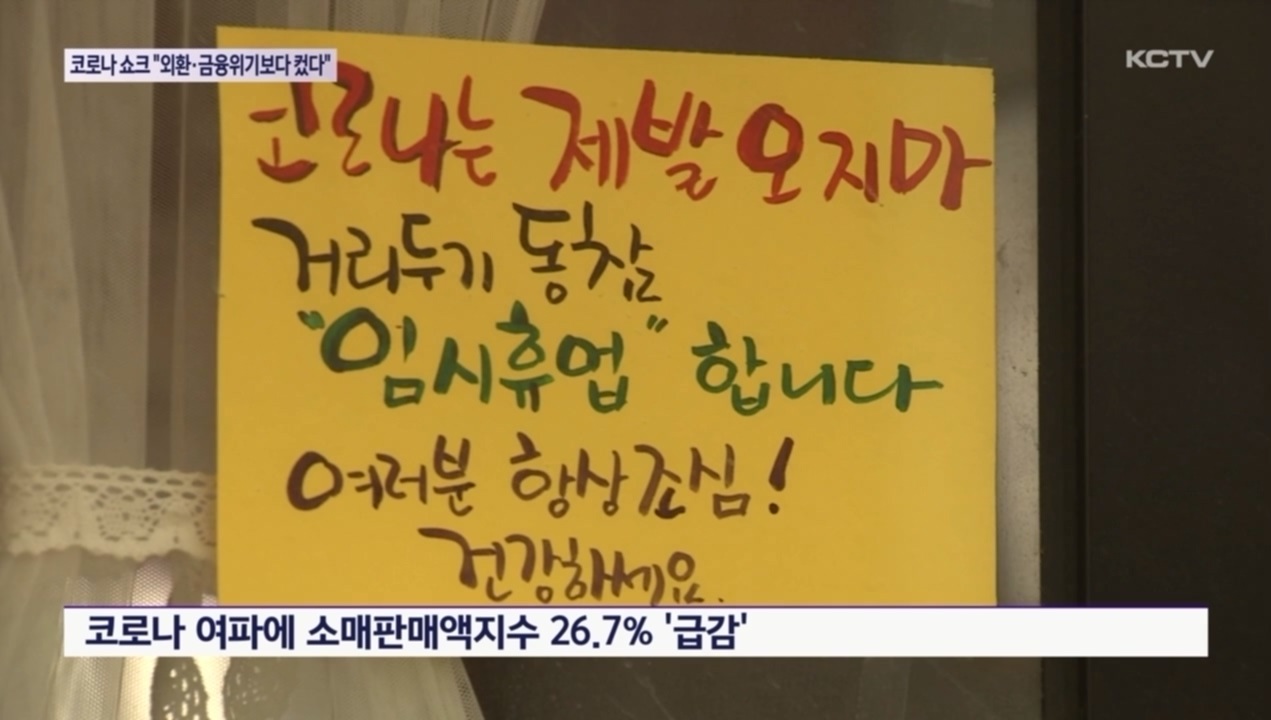 코로나 쇼크 "외환·금융위기보다 컸다"
KCTV
코로나는 제발 오지마
거리두기 동참
"임시휴업" 합니다
여러분 항상 조심!
건강하세요.
코로나 여파에 소매판매액지수 26.7% '급감'